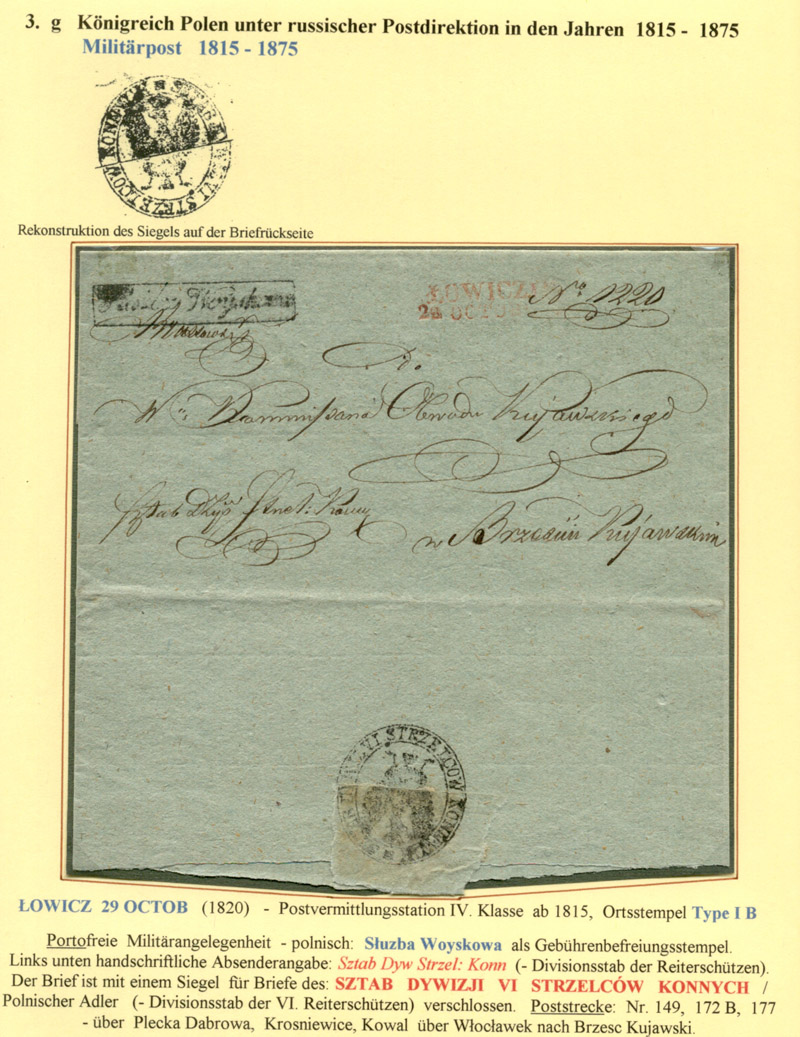 3. g Königreich Polen unter russischer Postdirektion in den Jahren 1815 - 1875
Militärpost 1815 - 1875
SZTABU VI STRZELCOW KONNYCH
Rekonstruktion des Siegels auf der Briefrückseite
Służba Woyskowa
ŁOWICZ
29 OCTOB
No 1220
Do
W Kommissarza Obwodu Kujawskiego
Sztab Dyw Strzel: Konny
w Brzesciu Kujawskim
VI STRZELCOW KONNYCH
ŁOWICZ 29 OCTOB (1820) - Postvermittlungsstation IV. Klasse ab 1815, Ortsstempel Type I B
Portofreie Militärangelegenheit - polnisch: Słuzba Woyskowa als Gebührenbefreiungsstempel.
Links unten handschriftliche Absenderangabe: Sztab Dyw Strzel: Konn (- Divisionsstab der Reiterschützen).
Der Brief ist mit einem Siegel für Briefe des: SZTAB DYWIZJI VI STRZELCÓW KONNYCH /
Polnischer Adler (- Divisionsstab der VI. Reiterschützen) verschlossen. Poststrecke: Nr. 149, 172 B, 177
- über Plecka Dabrowa, Krosniewice, Kowal über Włocławek nach Brzesc Kujawski.